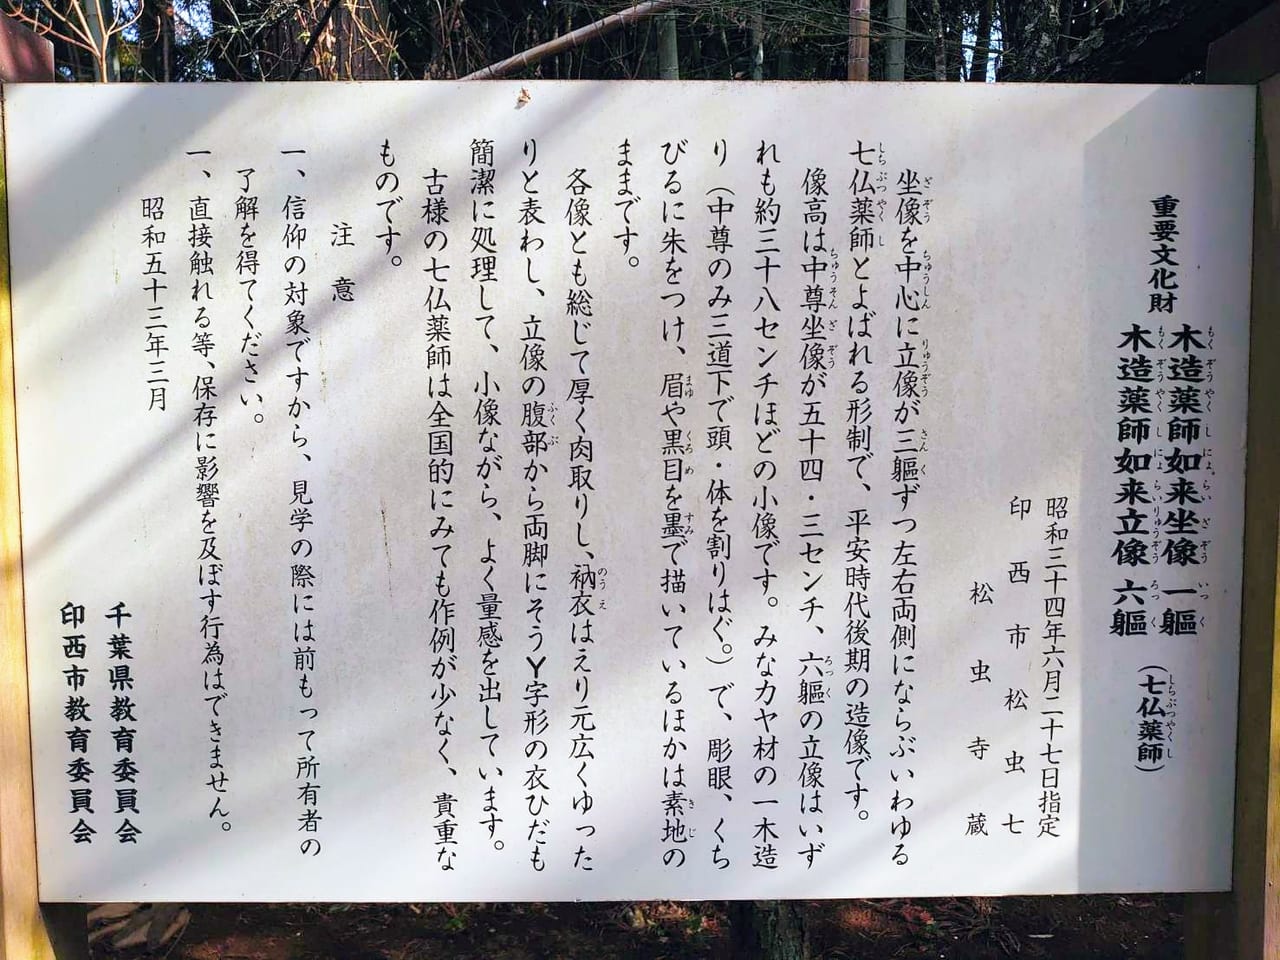 重要文化財
木造薬師如来坐像 一軀
木造薬師如来立像 六軀
(七仏薬師)
昭和三十四年六月二十七日指定
印西市松虫七
松虫寺蔵
坐像を中心に立像が三軀ずつ左右両側にならぶいわゆる
七仏薬師とよばれる形制で、平安時代後期の造像です。
像高は中尊坐像が五十四・三センチ、六軀の立像はいず
れも約三十八センチほどの小像です。みなカヤ材の一木造
り(中尊のみ三道下で頭・体を割りはぐ。)で、彫眼、くち
びるに朱をつけ、眉や黒目を墨で描いているほかは素地の
ままです。
各像とも総じて厚く肉取りし、衲衣はえり元広くゆった
りと表わし、立像の腹部から両脚にそうY字形の衣ひだも
簡潔に処理して、小像ながら、よく量感を出しています。
古様の七仏薬師は全国的にみても作例が少なく、貴重な
ものです。
注意
一、信仰の対象ですから、見学の際には前もって所有者の
了解を得てください。
一、直接触れる等、保存に影響を及ぼす行為はできません。
昭和五十三年三月
千葉県教育委員会
印西市教育委員会